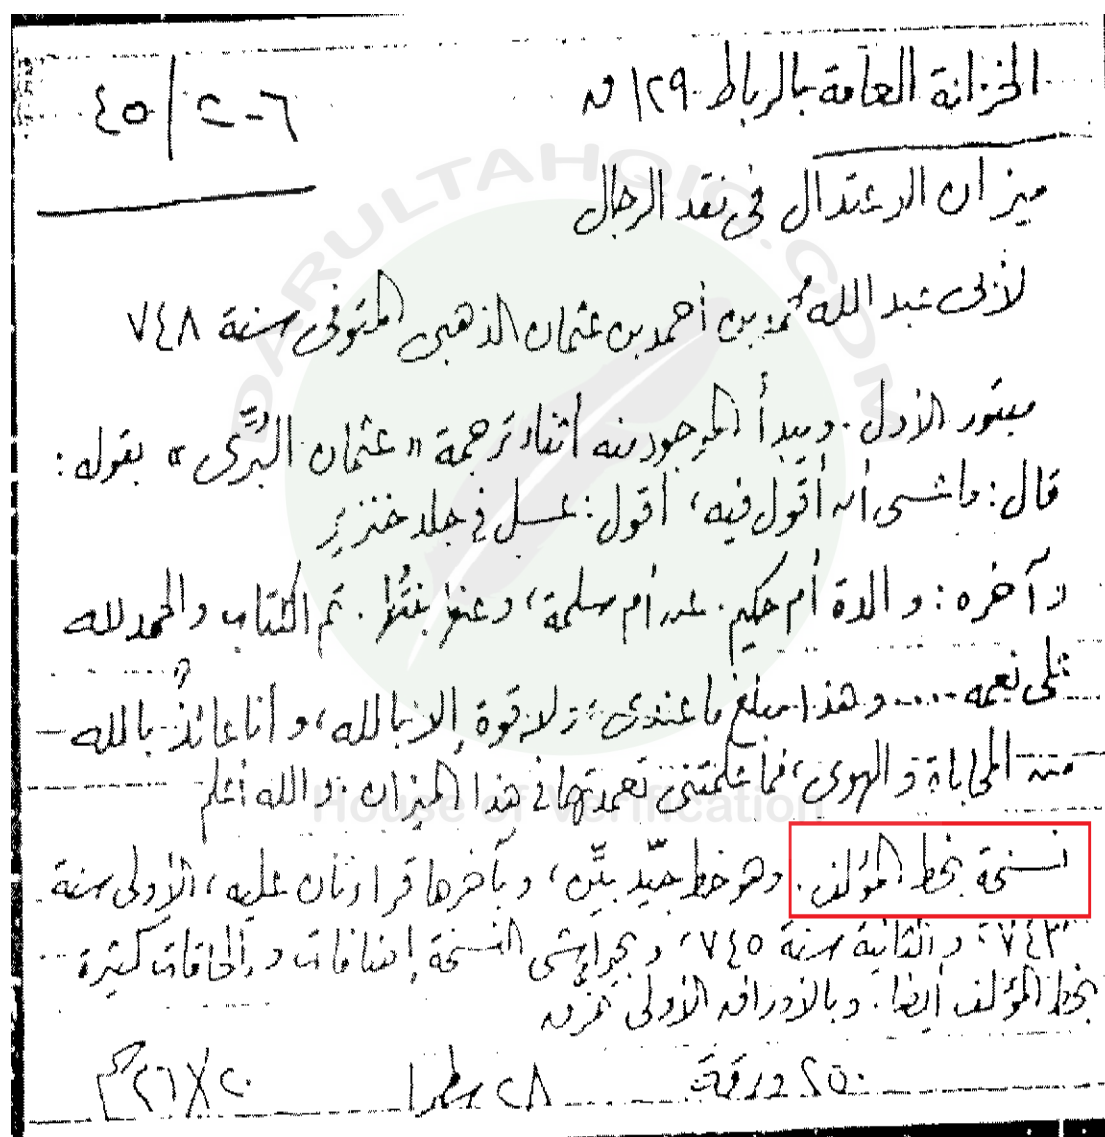 الخزانة العامة بالرباط ١٢٩ ق
٤٥/٢-٦
ميزان الاعتدال في نقد الرجال
لأبى عبد الله محمد بن أحمد بن عثمان الذهبى المتوفى سنة ٧٤٨
مبتور الأول. ويبدأ الموجود منه أثناء ترجمة « عثمان البُرِّى » بقوله:
قال: ما شى أن أقول فيه، أقول: عسل في جلد خنزير
وآخره: والدة أم حكيم. عن أم سلمة، وعنها بنتُها. تم الكتاب والحمد لله
على نعمه .... وهذا مبلغ ما عندى، ولا قوة إلا بالله، وأنا عائذ بالله
من المحاباة والهوى، فما تعمدتها في هذا الميزان. والله أعلم
نسخة بخط المؤلف. وهو خط جيّد بيّن، وبآخرها قراءتان عليه، الأولى سنة
٧٤٣، والثانية سنة ٧٤٥، وبحواشى النسخة إضافات وإلحاقات كثيرة
بخط المؤلف أيضا. وبالأوراق الأولى خرق
٢٥٠ ورقة ٢٨ سطرا ٢٠×٢٦ سم
DARULTAHQIQ.COM
House of Verification